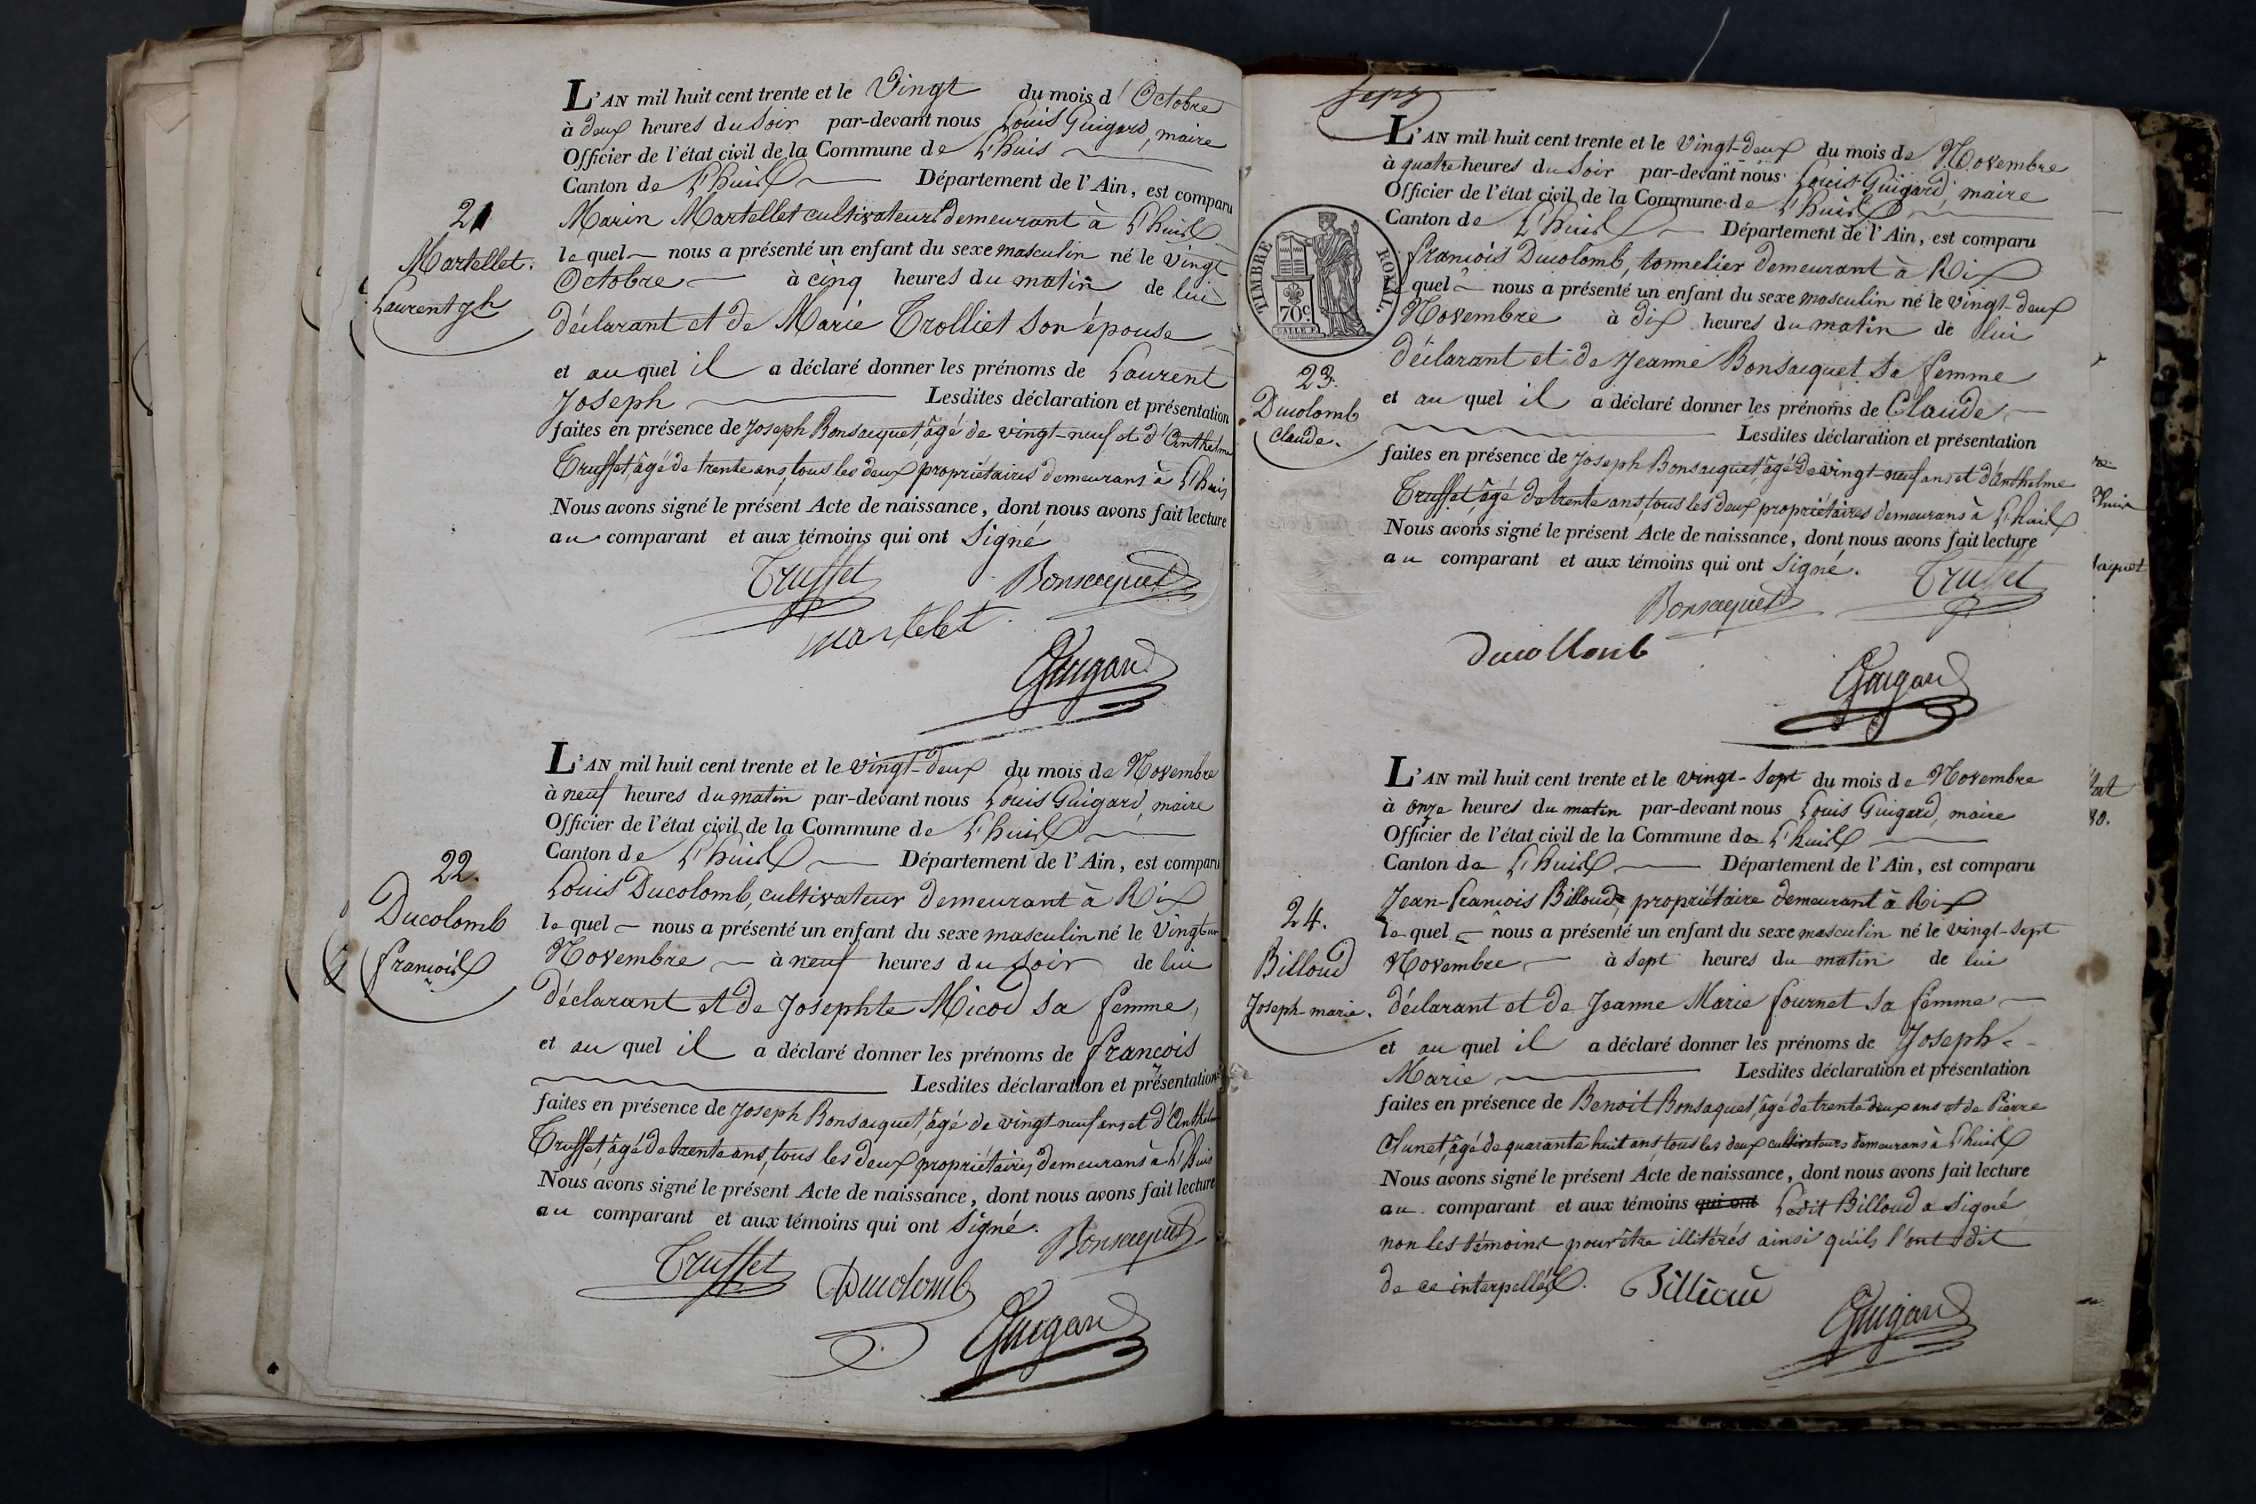 L'AN mil huit cent trente et le Vingt du mois d'Octobre
à deux heures du Soir par-devant nous Louis Guigard, maire
Officier de l'état civil de la Commune de L'huis
Canton de L'huis Département de l'Ain, est comparu
21
Martellet.
Laurent Jh
Marin Martellet cultivateur demeurant à L'huis
lequel nous a présenté un enfant du sexe masculin né le vingt
Octobre à cinq heures du matin de lui
déclarant et de Marie Trolliet son épouse
et auquel il a déclaré donner les prénoms de Laurent
Joseph Lesdites déclaration et présentation
faites en présence de Joseph Bonsacquet, âgé de vingt-neuf et d'Anthelme
Truffet, âgé de trente ans, tous les deux propriétaires demeurans à L'huis
Nous avons signé le présent Acte de naissance, dont nous avons fait lecture
au comparant et aux témoins qui ont Signé
Truffet Bonsacquet
martelet
Guigard
L'AN mil huit cent trente et le vingt-deux du mois de Novembre
à neuf heures du matin par-devant nous Louis Guigard, maire
Officier de l'état civil de la Commune de L'huis
Canton de L'huis Département de l'Ain, est comparu
22.
Ducolomb
françois
Louis Ducolomb, cultivateur demeurant à Rix
lequel nous a présenté un enfant du sexe masculin né le Vingt-un
Novembre à neuf heures du soir de lui
déclarant et de Josephte Micod sa femme,
et auquel il a déclaré donner les prénoms de françois
Lesdites déclaration et présentation
faites en présence de Joseph Bonsacquet, âgé de vingt-neuf ans et d'Anthelme
Truffet, âgé de trente ans, tous les deux propriétaires demeurans à L'huis
Nous avons signé le présent Acte de naissance, dont nous avons fait lecture
au comparant et aux témoins qui ont Signé.
Bonsacquet
Truffet Ducolomb
Guigard
sept
L'AN mil huit cent trente et le vingt-deux du mois de Novembre
à quatre heures du Soir par-devant nous Louis Guigard, maire
Officier de l'état civil de la Commune de L'huis
Canton de L'huis Département de l'Ain, est comparu
TIMBRE ROYAL.
70c
23.
Ducolomb
claude.
françois Ducolomb, tonnelier demeurant à Rix
quel nous a présenté un enfant du sexe masculin né le vingt-deux
Novembre à dix heures du matin de lui
déclarant et de Jeanne Bonsacquet sa femme
et auquel il a déclaré donner les prénoms de Claude
Lesdites déclaration et présentation
faites en présence de Joseph Bonsacquet, âgé de vingt-neuf ans et d'Anthelme
Truffet, âgé de trente ans, tous les deux propriétaires demeurans à L'huis
Nous avons signé le présent Acte de naissance, dont nous avons fait lecture
au comparant et aux témoins qui ont Signé.
Truffet
Bonsacquet
ducollomb
Guigard
L'AN mil huit cent trente et le vingt-sept du mois de Novembre
à onze heures du matin par-devant nous Louis Guigard, maire
Officier de l'état civil de la Commune de L'huis
Canton de L'huis Département de l'Ain, est comparu
24.
Billoud
Joseph-marie.
Jean-françois Billoud, propriétaire demeurant à Rix
lequel nous a présenté un enfant du sexe masculin né le vingt-sept
Novembre à sept heures du matin de lui
déclarant et de Jeanne Marie fournet sa femme
et auquel il a déclaré donner les prénoms de Joseph-
Marie Lesdites déclaration et présentation
faites en présence de Benoit Bonsaquet, âgé de trente deux ans et de Pierre
Clunet, âgé de quarante huit ans, tous les deux cultivateurs demeurans à L'huis
Nous avons signé le présent Acte de naissance, dont nous avons fait lecture
au comparant et aux témoins qui ont Ledit Billoud a Signé
non les témoins pour être illitérés ainsi qu'ils l'ont dit
de ce interpellés.
Guigard